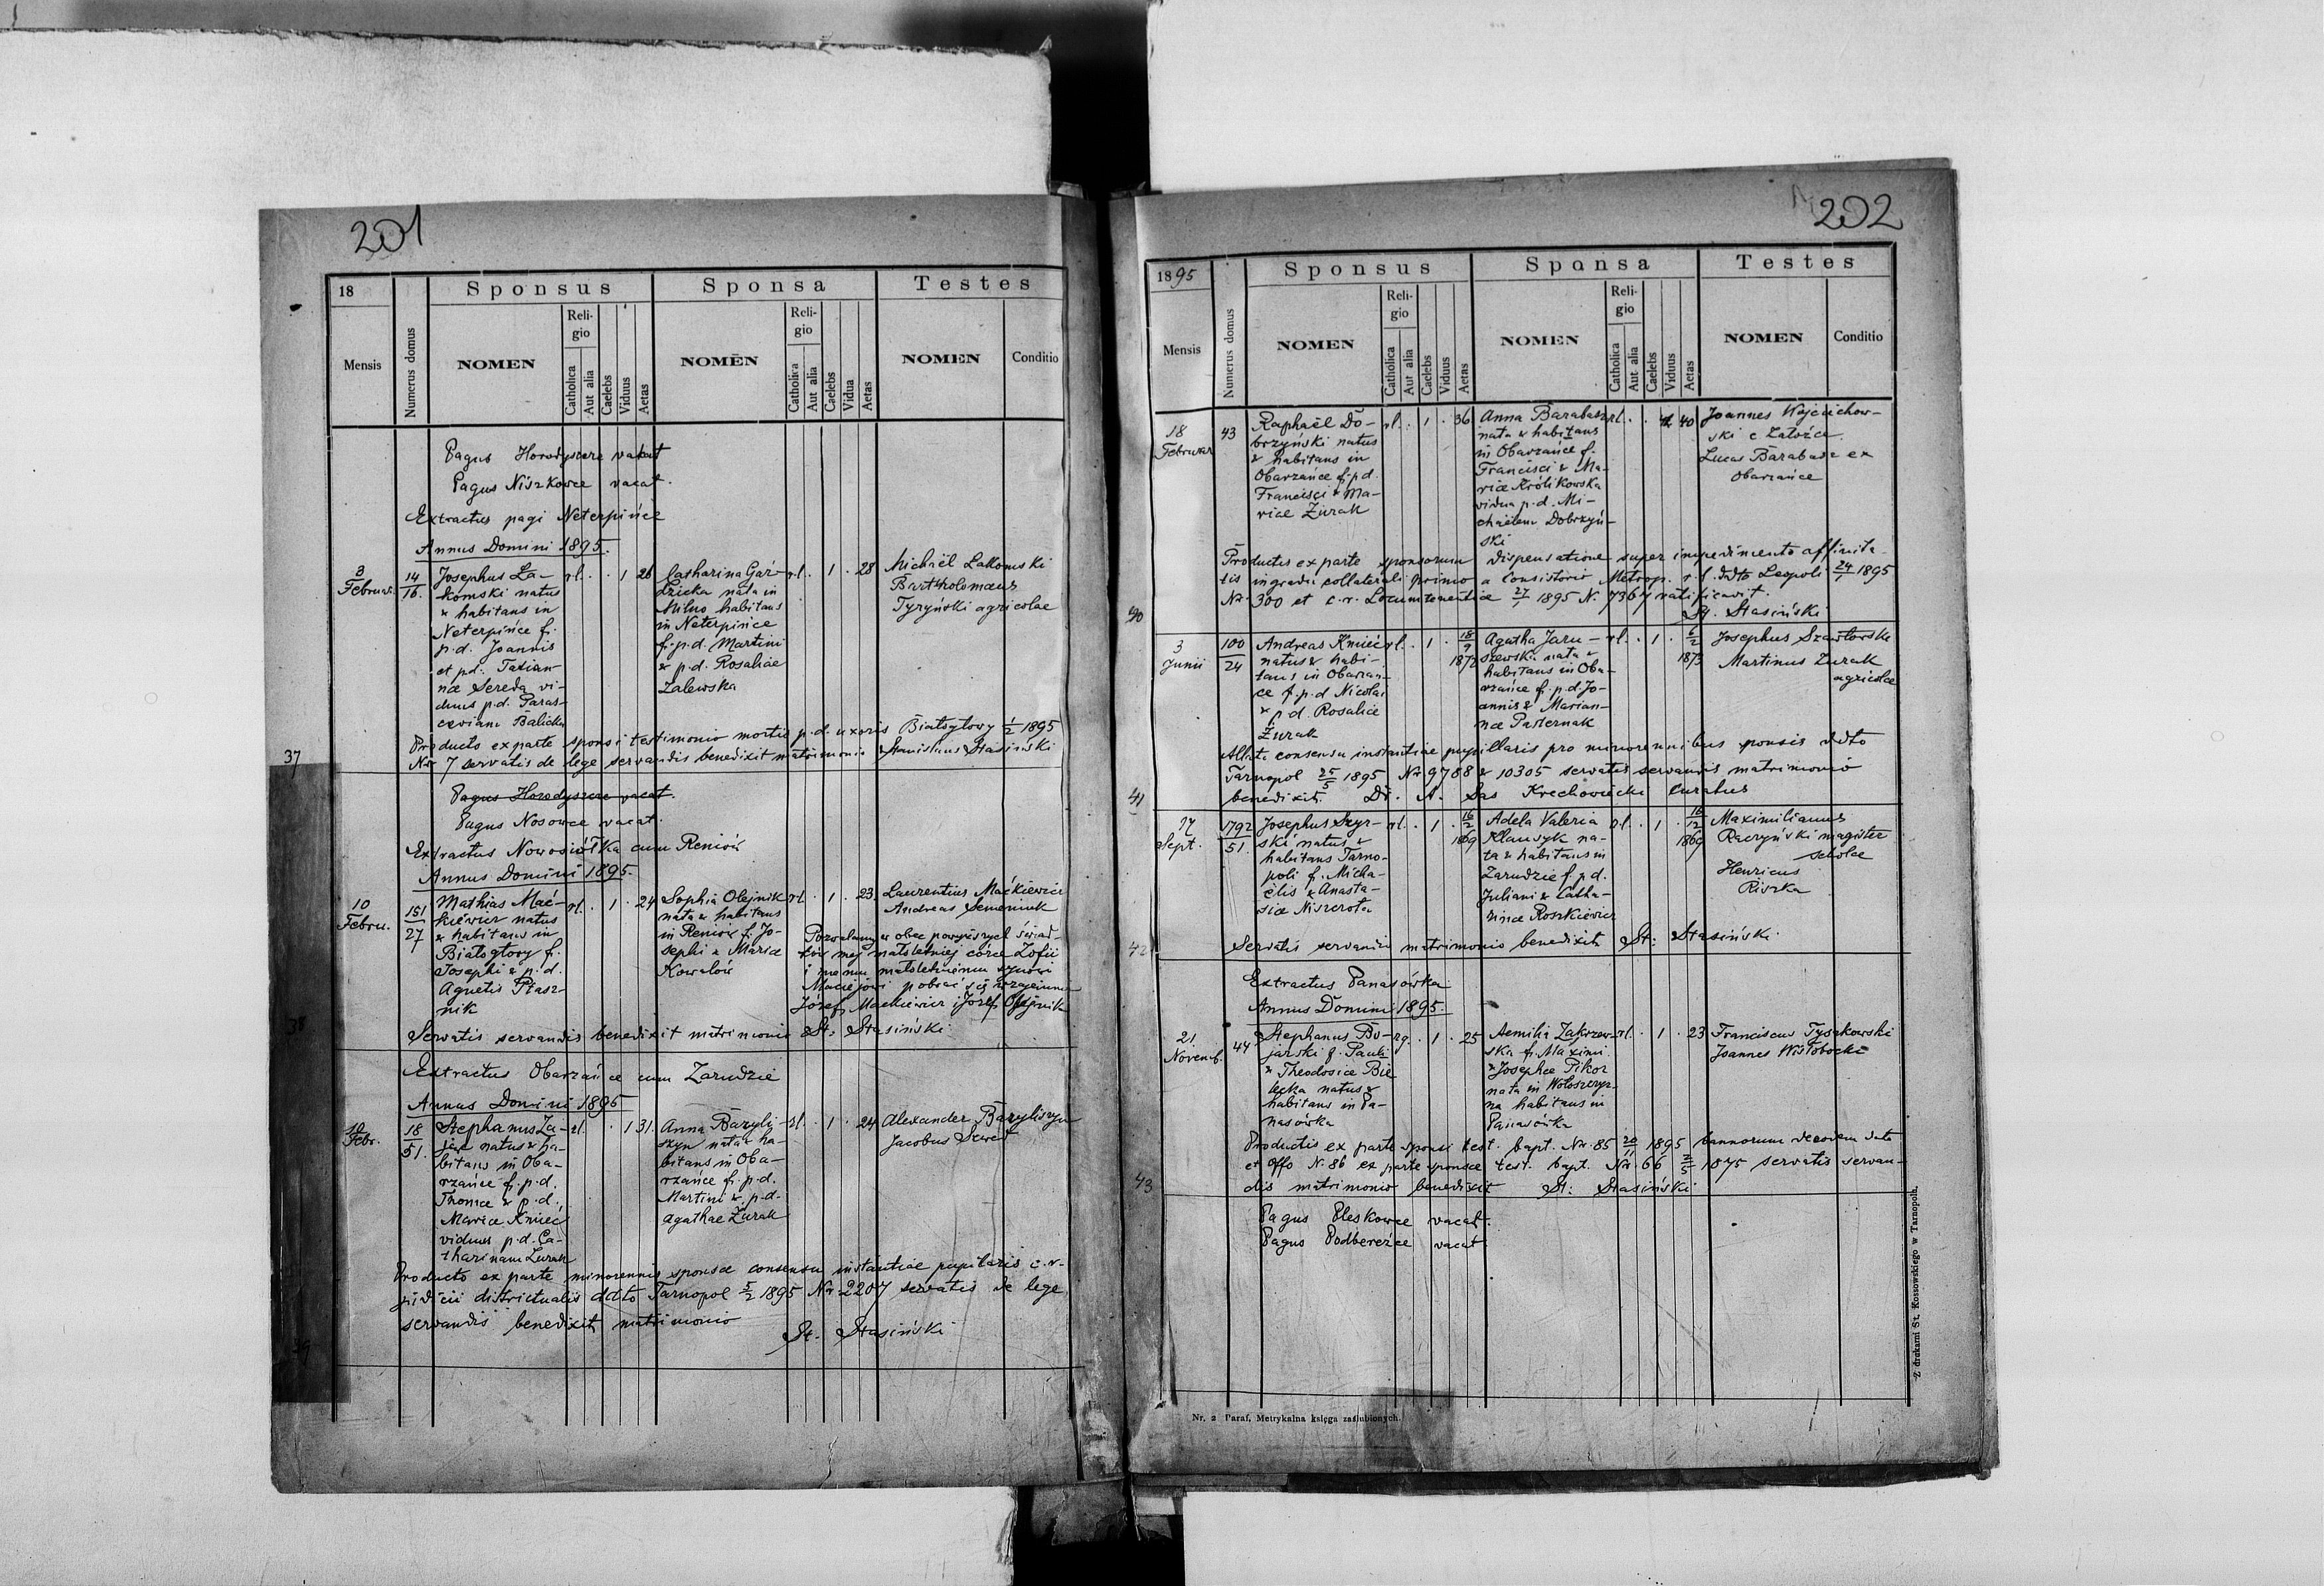 201
18
Sponsus
Sponsa
Testes
Mensis
Numerus domus
NOMEN
Religio
Catholica
Aut alia
Caelebs
Viduus
Aetas
NOMEN
Religio
Catholica
Aut alia
Caelebs
Vidua
Aetas
NOMEN
Conditio
Pagus Horodyszcze vakat
Pagus Niszkowce vacat.
Extractus pagi Neterpińce
Annus Domini 1895.
3
Februar.
14
16.
Josephus Ła-
komski natus
& habitans in
Neterpińce f.
p.d. Joannis
et p.d. Tatian-
nae Sereda vi-
duus p.d. Paras-
ceviam Balicka
rl. . . 1 26
Catharina Gar-
nata in
Milno habitans
in Neterpińce
f. p.d. Martini
& p.d. Rosaliae
Zalewska
rl. . 1 . 28
Michaël Łakomski
Bartholomaeus
Tyryński agricolae
Producto ex parte sponsi testimonio mortis p.d. uxoris Białogłowy 1/2 1895
Nr 7 servatis de lege servandis benedixit matrimonio Stanislaus Stasiński
37
Pagus Horodyszcze vacat.
Pagus Nosowce vacat.
Extractus Nowosiółka cum Reniów
Annus Domini 1895.
10
Febru.
151
27
Mathias Mać-
kiewicz natus
& habitans in
Białogłowy f.
Josephi & p.d.
Agnetis Ptasz-
nik
rl. . 1 . 24
Sophia Olejnik
nata & habitans
in Reniów f. Jo-
sephi & Mariae
Kowalów
rl. . 1 . 23.
Laurentius Maćkiewicz
Andreas Semeniuk
Pozwalamy w obec powyższych świad-
ków mej małoletniej córce Zofii
i memu małoletniemu synowi
Maciejowi pobrać się wzajemnie
Józef Maćkiewicz i Józef Olejnik
Servatis servandis benedixit matrimonio St: Stasiński
38
Extractus Obarzańce cum Zarudzie
Annus Domini 1895
10
Febr.
18
51.
Stephanus Za-
jąc natus & ha-
bitans in Oba-
rzańce f. p.d.
Thomae & p.d.
Mariae Kmieć
viduus p.d. Ca-
tharinam Żurak
rl. . . 1 31.
Anna Baryli-
szyn nata & ha-
bitans in Oba-
rzańce f. p.d.
Martini & p.d.
Agathae Żurak
rl. . 1 . 24
Alexander Baryliszyn
Jacobus Seweт
Producto ex parte minorennis sponsae consensu instantiae pupilaris c.r.
judicii districtualis ddto Tarnopol 5/2 1895 Nr 2207 servatis de lege
servandis benedixit matrimonio
St. Stasiński
39
202
1895
Sponsus
Sponsa
Testes
Mensis
Numerus domus
NOMEN
Religio
Catholica
Aut alia
Caelebs
Viduus
Aetas
NOMEN
Religio
Catholica
Aut alia
Caelebs
Viduus
Aetas
NOMEN
Conditio
18
Februar
43
Raphaël Do-
brzyński natus
& habitans in
Obarzańce f. p.d.
Francisci & Ma-
riae Żurak
rl. . 1 . 36
Anna Barabasz
nata & habitans
in Obarzańce f.
Francisci & Ma-
riae Królikowska
vidua p.d. Mi-
chaëlem Dobrzyń-
ski
rl. . . 1 40
Joannes Wojciechow-
ski e Załoźce.
Lucas Barabasz ex
Obarzańce
Productis ex parte sponsorum dispensatione super impedimento affinita-
tis in gradu collaterali primo a Consistorio Metrop. r.l. ddto Leopoli 24/1 1895
Nr. 300 et c.r. Locumtenentiae 27/1 1895 N. 7367 ratificavit.
St. Stasiński
40
3
Junii
100
24
Andreas Kmieć
natus & habi-
tans in Obarzań-
ce f. p.d Nicolai
& p.d. Rosaliae
Żurak
rl. . 1 . 18/9
1872
Agatha Jaru-
szewska nata &
habitans in Oba-
rzańce f. p.d. Jo-
annis & Marian-
nae Pasternak
rl. . 1 . 6/2
1873
Josephus Szawłowski
Martinus Żurak
agricolae
Allato consensu instantiae pupillaris pro minorennibus sponsis ddto
Tarnopol 25/5 1895 Nr 9788 & 10305 servatis servandis matrimonio
benedixit. Dr. A. Sas Krechowiecki Curatus
41
17
Sept.
1792
51.
Josephus Szyr-
ski natus &
habitans Tarno-
poli f. Micha-
ëlis & Anasta-
siae Niszerota
rl. . 1 . 16/2
1869
Adela Valeria
Klamsyk na-
ta & habitans in
Zarudzie f. p.d.
Juliani & Catha-
rinae Roszkiewicz
rl. . 1 . 16/12
1869
Maximilianus
Raczyński magister
scholae
Henricus
Rivzka
Servatis servandis matrimonio benedixit St: Stasiński.
42
Extractus Panasówka
Annus Domini 1895.
21
Novemb.
44
Stephanus Bo-
jarski f. Pauli
& Theodosiae Bie
lecka natus &
habitans in Pa-
nasówka
rg. . 1 . 25
Aemilia Zakrzew-
ska f. Maximi
& Josephae Pikor
nata in Wołoszczyz-
na habitans in
Panasówka
rl. . 1 . 23
Franciscus Tysakowski
Joannes Wisłobocki
Productis ex parte sponsi test. bapt. Nr. 85 20/11 1895 bannorum eodem dato
et offo N. 86 ex parte sponsae test. bapt. Nr 66 2/5 1875 servatis servan-
dis matrimonio benedixit St: Stasiński
43
Pagus Pleskowce vacat.
Pagus Podbereźce vacat.
Nr. 2 Paraf. Metrykalna księga zaślubionych.
Z drukarni St. Kossowskiego w Tarnopolu.